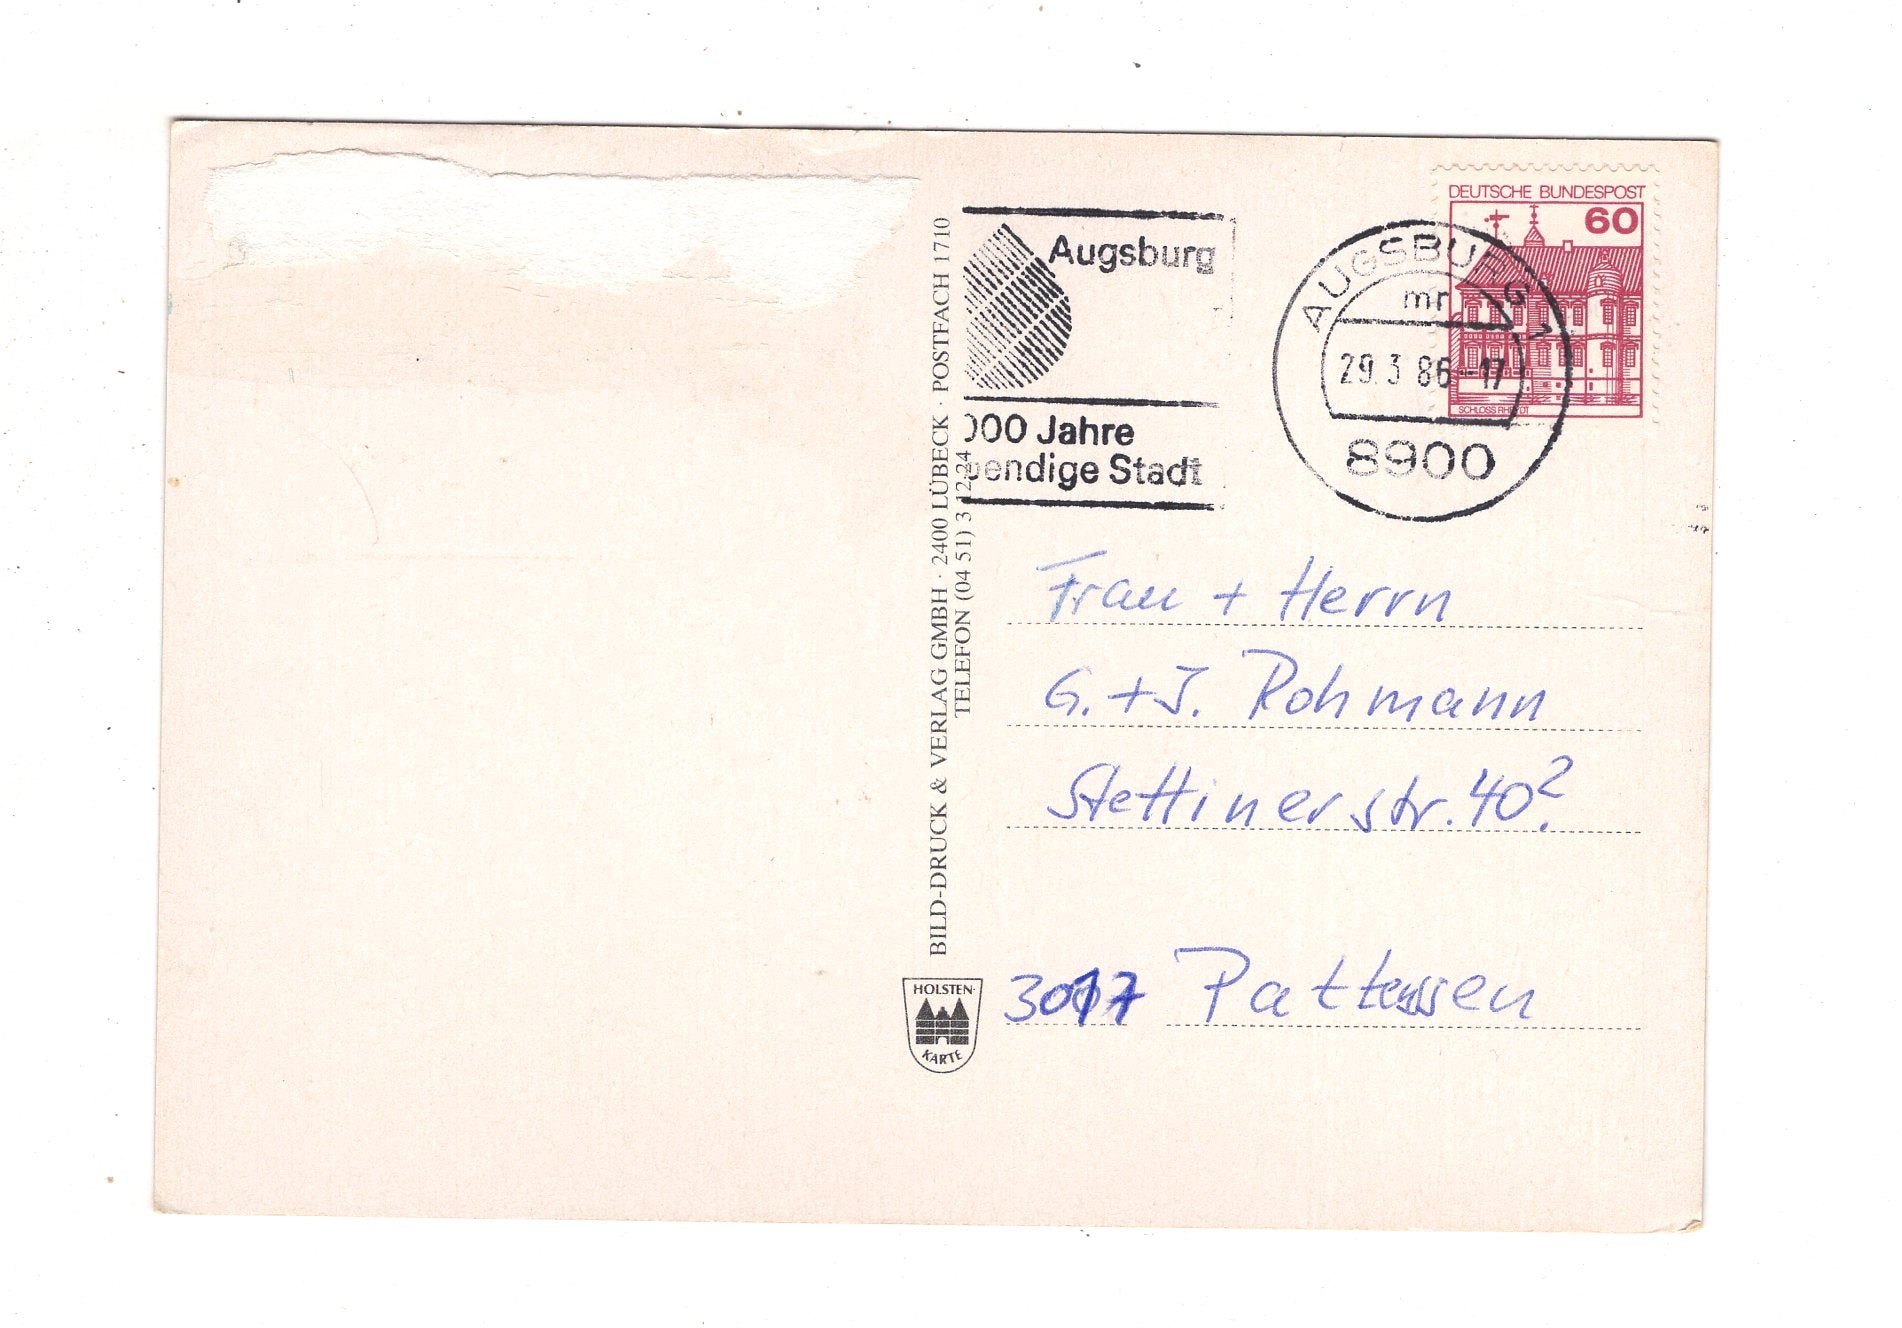 DEUTSCHE BUNDESPOST
60
SCHLOSS RHEYDT
Augsburg
000 Jahre
bendige Stadt
AUGSBURG 11
mr
29.3.86-17
8900
BILD-DRUCK & VERLAG GMBH · 2400 LÜBECK · POSTFACH 1710
TELEFON (04 51) 3 12 24
Frau + Herrn
G. + J. Rohmann
Stettinerstr. 40²
3017 Pattensen
HOLSTEN-
KARTE